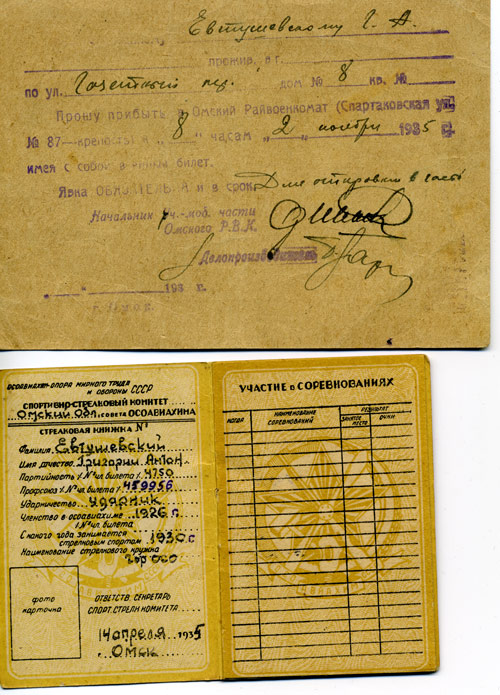 Евтушевскому Г. А.
прожив. в г.
по ул. Газетный пер. дом № 8 кв. №
Прошу прибыть в Омский Райвоенкомат (Спартаковская ул.
№ 87—крепость) к „ 8 “ часам „ 2 “ ноября 1935 г.
имея с собой военный билет.
Явка ОБЯЗАТЕЛЬНА и в срок. Для отправки в часть
Начальник Уч.-мод. части
Омского Р.В.К.
Делопроизводитель
193 г.
г. Омск.
ОСОАВИАХИМ-ОПОРА МИРНОГО ТРУДА
И ОБОРОНЫ СССР
СПОРТИВНО-СТРЕЛКОВЫЙ КОМИТЕТ
Омский Обл. СОВЕТА ОСОАВИАХИМА
СТРЕЛКОВАЯ КНИЖКА №
Фамилия Евтушевский
Имя отчество Григорий Антон.
Партийность и № чл. билета 4750
Профсоюз и № чл. билета 459956
Ударничество ударник
Членство в осоавиахиме 1926 г
и № чл. билета
С какого года занимается
стрелковым спортом 1930 г
Наименование стрелкового кружка
гор ОСО
фото
карточка
ОТВЕТСТВ. СЕКРЕТАРЬ
СПОРТ. СТРЕЛК. КОМИТЕТА
14 апреля 1935
ОМСК
УЧАСТИЕ в СОРЕВНОВАНИЯХ
КОГДА
НАИМЕНОВАНИЕ СОРЕВНОВАНИЙ
РЕЗУЛЬТАТ
ЗАНЯТОЕ МЕСТО
ОЧКИ